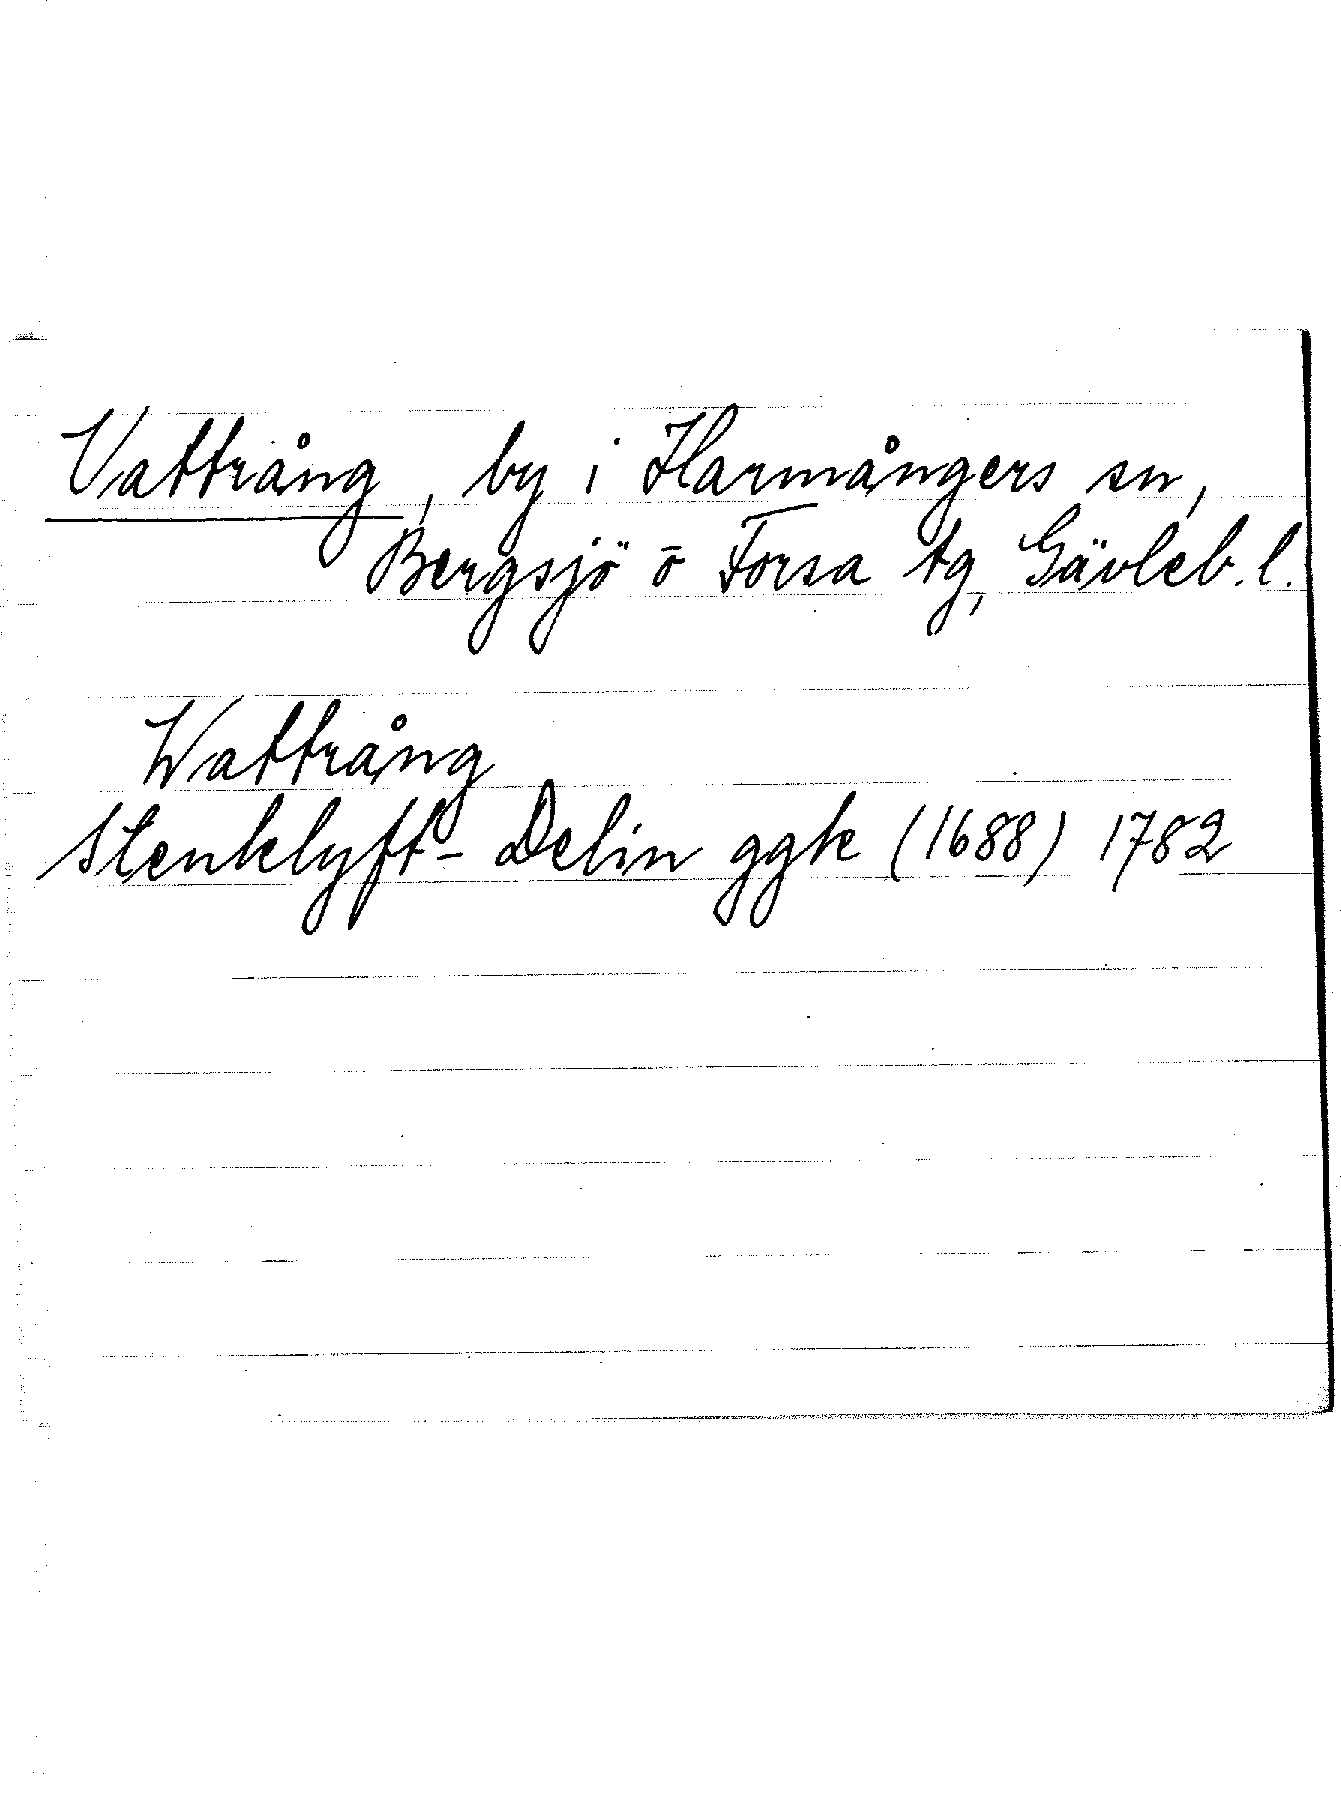 Vattrång, by i Harmångers sn,
Bergsjö o Forsa tg, Gävleb. l.
Wattrång
Stenklyft - Delin ggk (1688) 1782